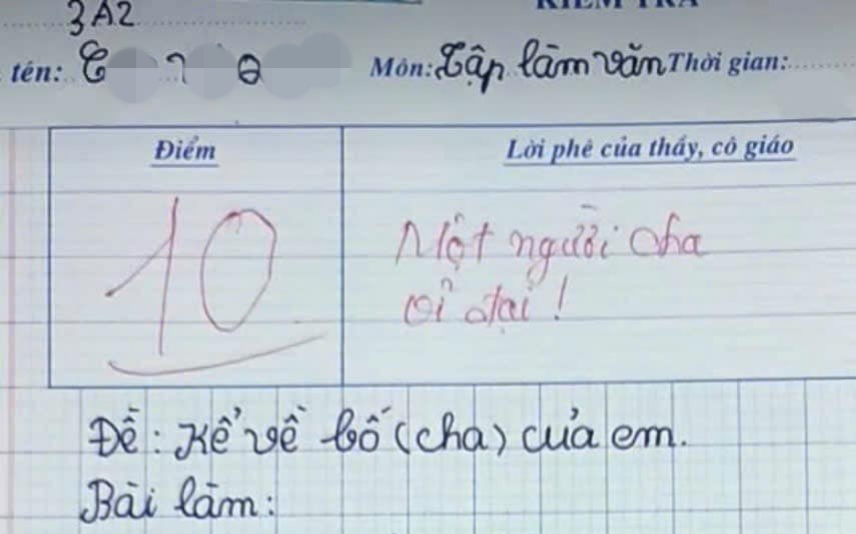 3A2
KIỂM TRA
tên:
Môn: Tập làm văn Thời gian:
Điểm
Lời phê của thầy, cô giáo
10
Một người cha
vĩ đại!
Đề: Kể về bố (cha) của em.
Bài làm: